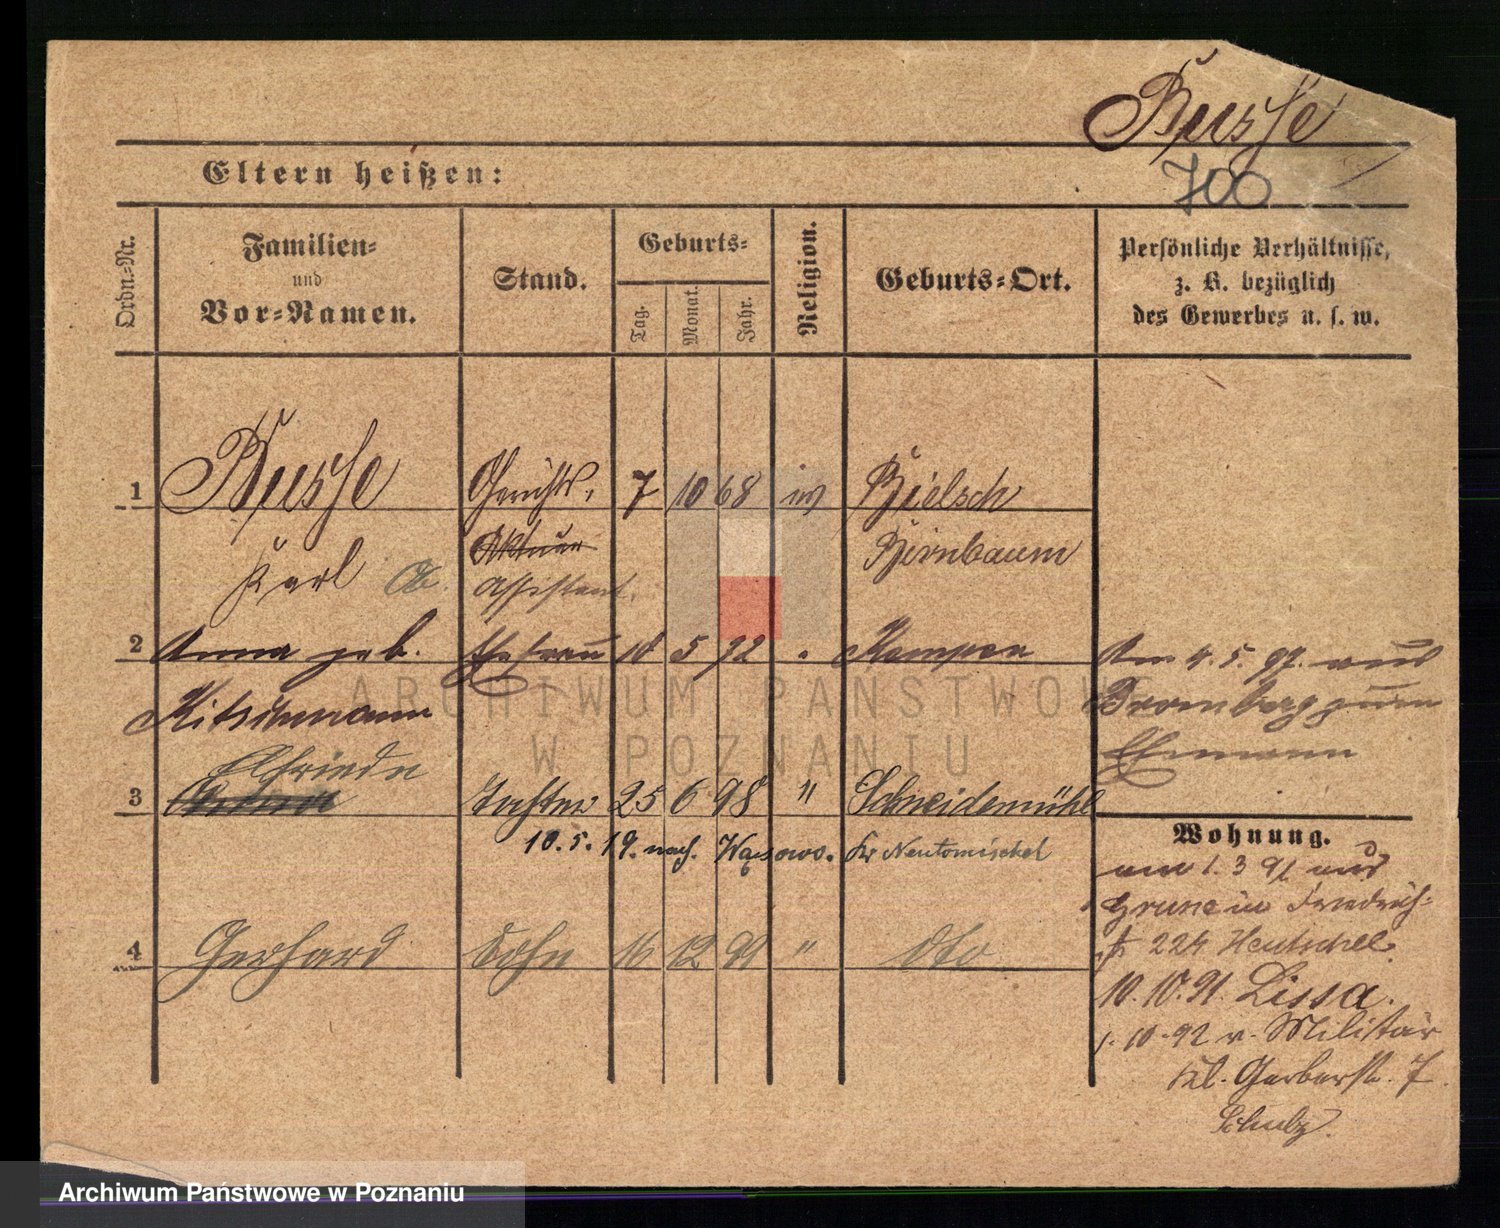 Busse
700
Eltern heißen:
Ordn.-Nr.
Familien-
und
Vor-Namen.
Stand.
Geburts-
Tag.
Monat.
Jahr.
Religion.
Geburts-Ort.
Persönliche Verhältnisse,
z. B. bezüglich
des Gewerbes u. s. w.
1 Busse Gerichts, 7 10 68 Bielsch
Aktuar Birnbaum
Karl Assistent.
2 Anna geb. Ehefrau 18 5 72 Kempen Am 4. 5. 97. aus
Kitschmann Bromberg zum
Ehemann
Elfriede
3 Tochter 25 6 98 " Schneidemühl
10. 5. 19. nach Wąsowo. Kr Neutomischel
Wohnung.
am 1. 3 91 aus
Grune in Friedrich-
str 224 Hentschel.
4 Gerhard Sohn 16 12 99 " dto
10. 10. 91. Lissa.
1. 10. 92 v. Militär
Kl. Gerberstr. 7.
Schulz.
ARCHIWUM PAŃSTWOWE
W POZNANIU
Archiwum Państwowe w Poznaniu